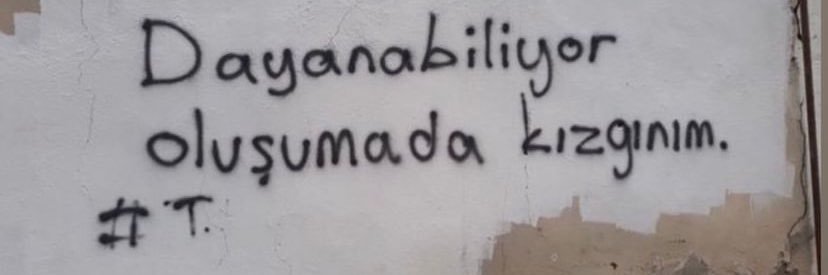 Dayanabiliyor
oluşumada kızgınım.
# T.